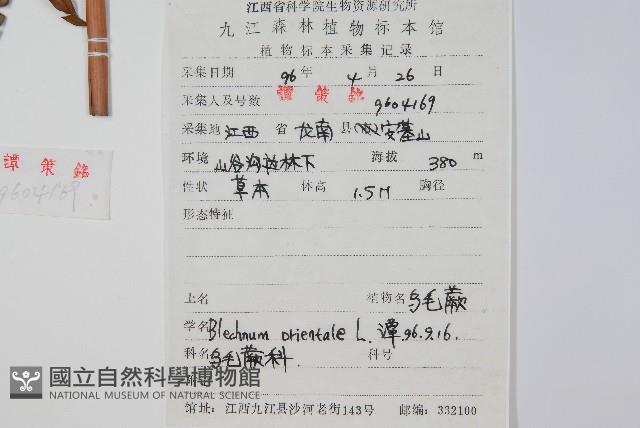 江西省科学院生物资源研究所
九江森林植物标本馆
植物标本采集记录
采集日期 96 年 4 月 26 日
采集人及号数 譚策銘 9604169
采集地 江西 省 龙南 县 安基山
环境 山谷沟边林下 海拔 380 m
性状 草本 体高 1.5M 胸径
形态特征
土名 植物名 乌毛蕨
学名 Blechnum orientale L. 譚 96.9.16.
科名 乌毛蕨科 科号
附
馆址:江西九江县沙河老街143号 邮编:332100
譚策銘
9604169
國立自然科學博物館
NATIONAL MUSEUM OF NATURAL SCIENCE